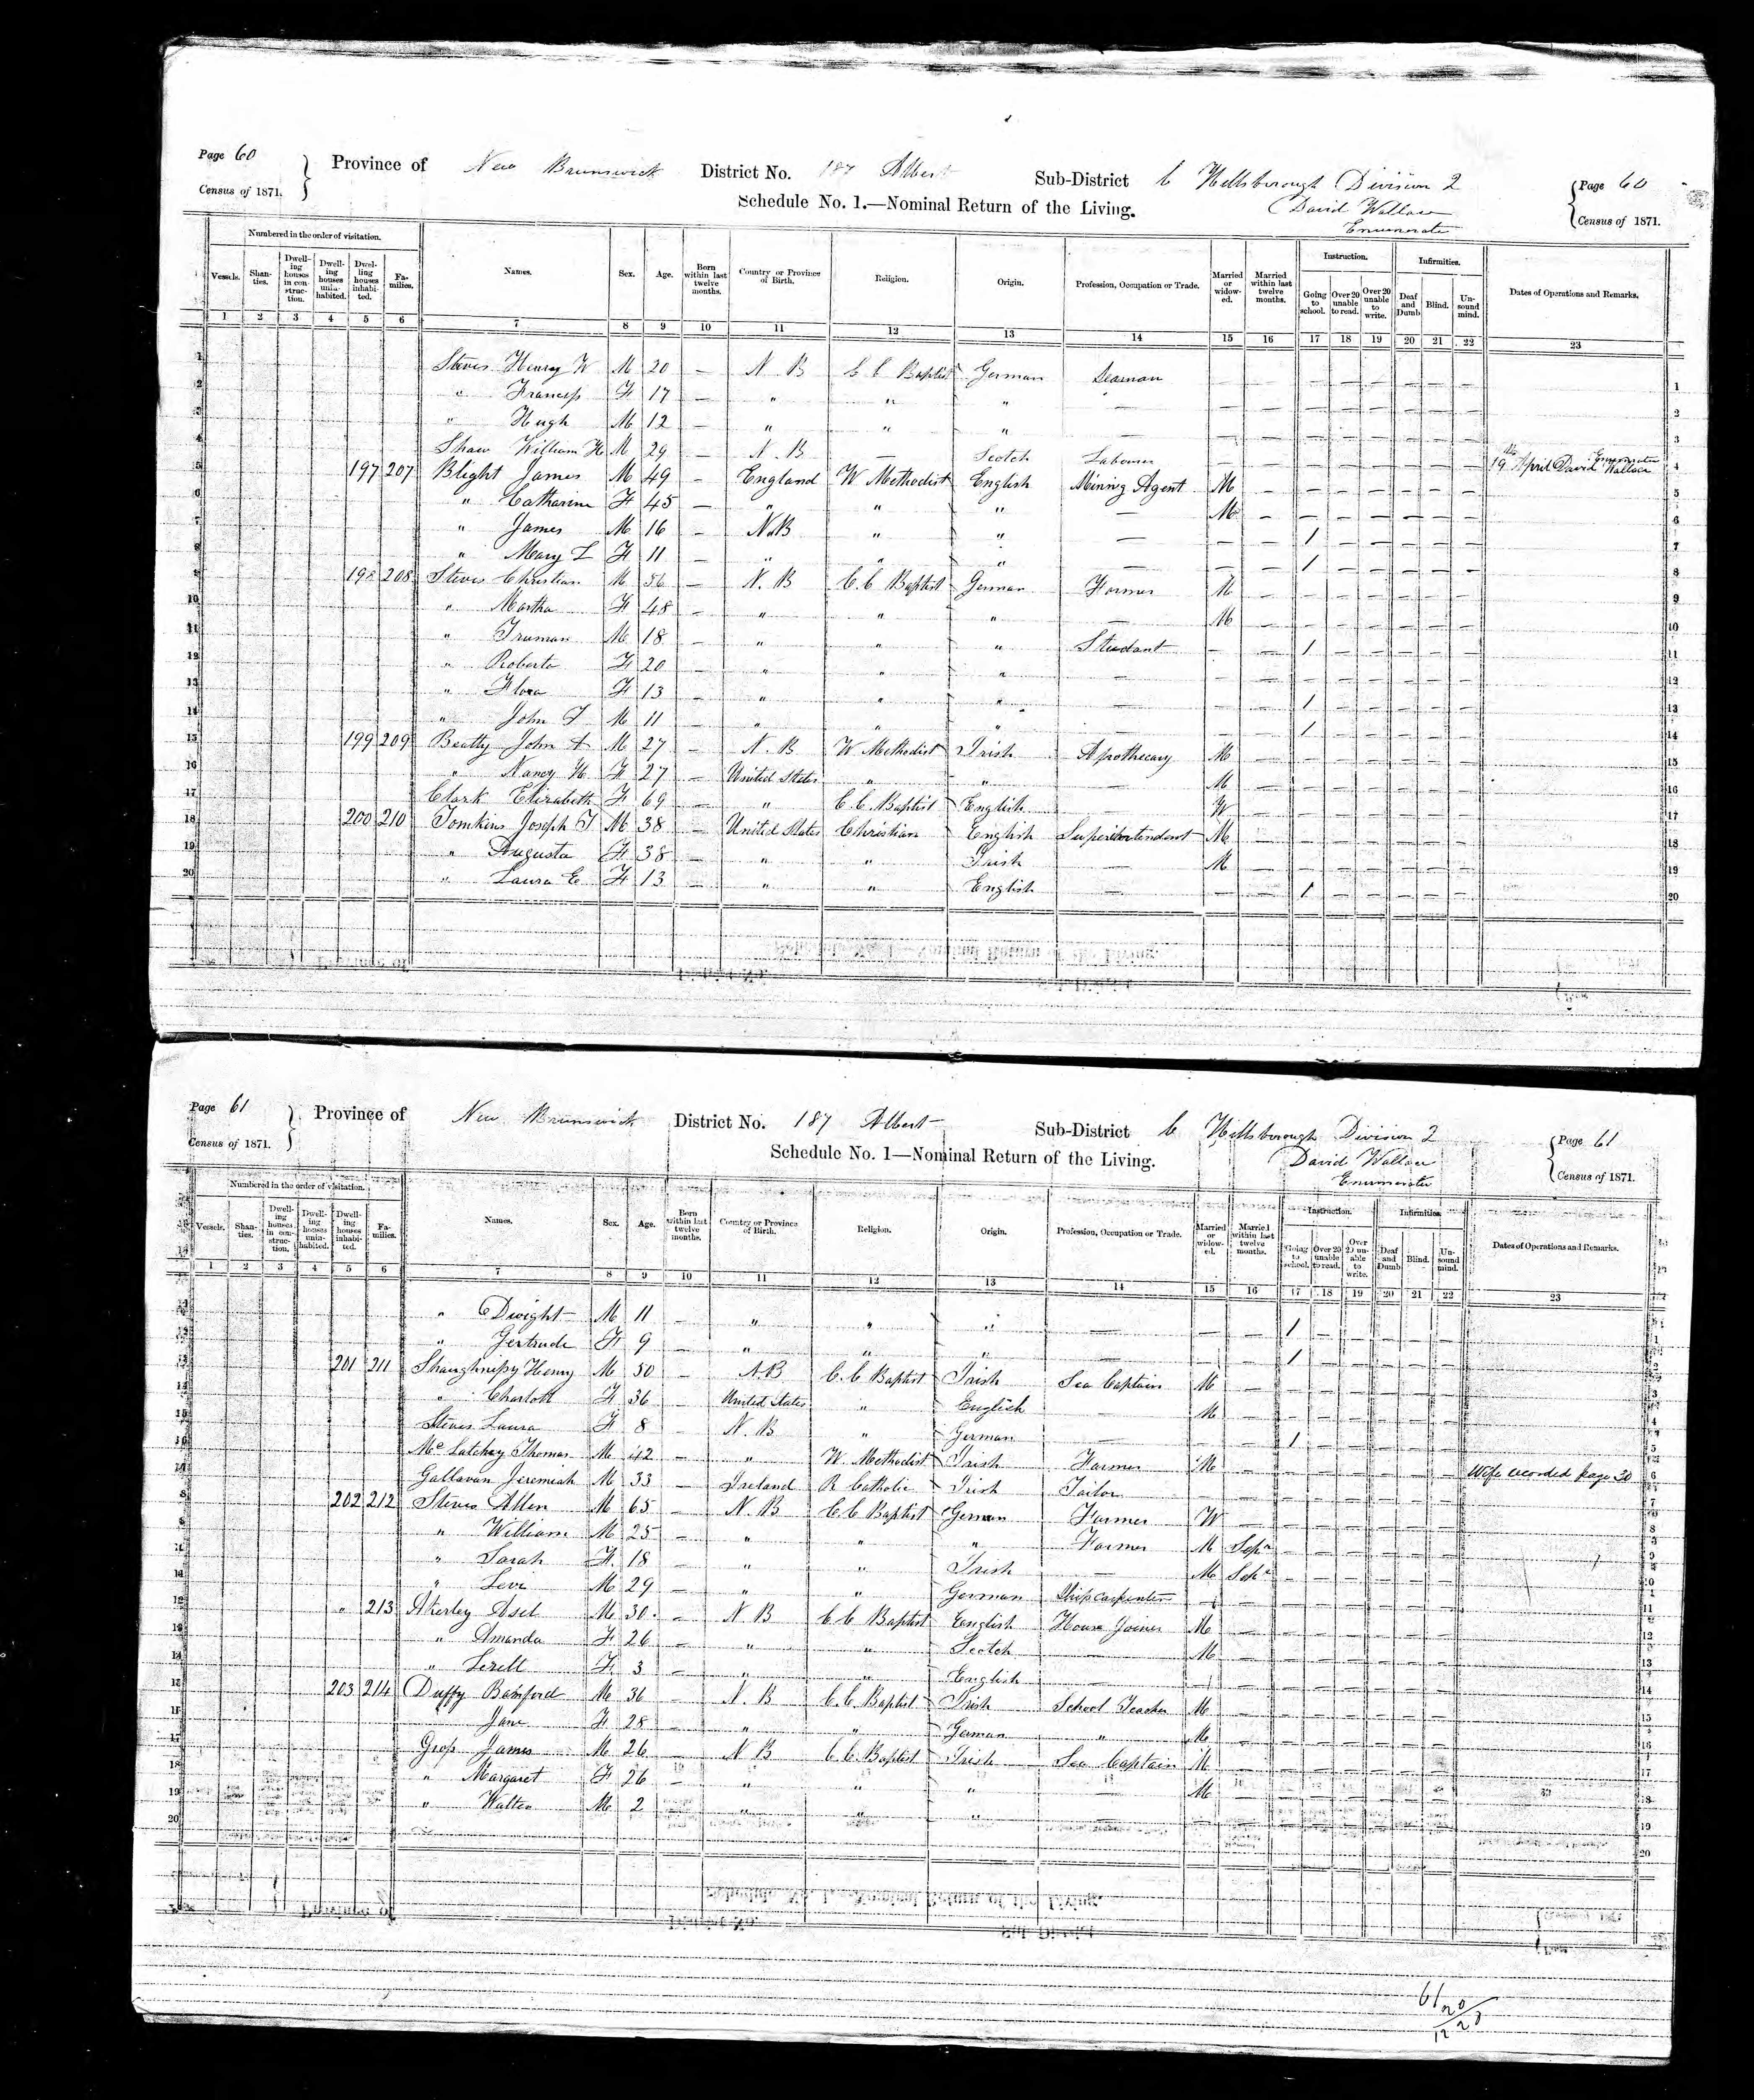 Page 60 Province of New Brunswick District No. 187 Albert Sub-District C Hillsborough Division 2 Page 60
Census of 1871. Schedule No. 1.—Nominal Return of the Living. David Wallace Census of 1871.
Enumerator
Numbered in the order of visitation. Instruction. Infirmities.
Vessels. Shanties. Dwelling houses in construction. Dwelling houses uninhabited. Dwelling houses inhabited. Families. Names. Sex. Age. Born within last twelve months. Country or Province of Birth. Religion. Origin. Profession, Occupation or Trade. Married or widowed. Married within last twelve months. Going to school. Over 20 unable to read. Over 20 unable to write. Deaf and Dumb Blind. Unsound mind. Dates of Operations and Remarks.
1 2 3 4 5 6 7 8 9 10 11 12 13 14 15 16 17 18 19 20 21 22 23
1 Steves Henry W M 20 — N. B C C Baptist German Seaman — — — — — — — — 1
2 " Francess F 17 — " " " — — — — — — — — — 2
3 " Hugh M 12 — " " " — — — — — — — — — 3
4 Shaw William H M 29 — N. B — Scotch Labourer — — — — — — — — 19 April David Wallace Enumerator 4
5 197 207 Blight James M 49 — England W Methodist English Mining Agent M — — — — — — — 5
6 " Catharine F 45 — " " " — M — — — — — — — 6
7 " James M 16 — N.B " " — — — 1 — — — — — 7
8 " Mary L F 11 — " " " — — — 1 — — — — — 8
9 198 208 Steves Christian M 56 — N. B C. C Baptist German Farmer M — — — — — — — 9
10 " Martha F 48 — " " " — M — — — — — — — 10
11 " Truman M 18 — " " " Studant — — 1 — — — — — 11
12 " Roberta F 20 — " " " — — — — — — — — — 12
13 " Flora F 13 — " " " — — — 1 — — — — — 13
14 " John T M 11 — " " " — — — 1 — — — — — 14
15 199 209 Beatty John A M 27 — N. B W Methodist Irish Apothecary M — — — — — — — 15
16 " Nancy H F 27 — United States " " — M — — — — — — — 16
17 Clark Elizabeth F 69 — " C. C. Baptist English — W — — — — — — — 17
18 200 210 Tomkins Joseph T M 38 — United States Christian English Superintendent M — — — — — — — 18
19 " Augusta F 38 — " " Irish — M — — — — — — — 19
20 " Laura E F 13 — " " English — — — 1 — — — — — 20
Page 61 Province of New Brunswick District No. 187 Albert Sub-District C Hillsborough Division 2 Page 61
Census of 1871. Schedule No. 1—Nominal Return of the Living. David Wallace Census of 1871.
Enumerator
Numbered in the order of visitation. Instruction. Infirmities
Vessels. Shanties. Dwelling houses in construction. Dwelling houses uninhabited. Dwelling houses inhabited. Families. Names. Sex. Age. Born within last twelve months. Country or Province of Birth. Religion. Origin. Profession, Occupation or Trade. Married or widowed. Married within last twelve months. Going to school. Over 20 unable to read. Over 20 unable to write. Deaf and Dumb Blind. Unsound mind. Dates of Operations and Remarks.
1 2 3 4 5 6 7 8 9 10 11 12 13 14 15 16 17 18 19 20 21 22 23
" Dwight M 11 — " " " — — — 1 — — — — — 1
" Gertrude F 9 — " " " — — — 1 — — — — — 2
201 211 Shaughnessy Henry M 50 — N.B C. C Baptist Irish Sea Captain M — — — — — — — 3
" Charlott F 36 — United States " English — M — — — — — — — 4
Steves Laura F 8 — N. B " German — — — 1 — — — — — 5
Mc Latchey Thomas M 42 — " W. Methodist Irish Farmer M — — — — — — — Wife recorded page 30 6
Gallavan Jeremiah M 33 — Ireland R Catholic Irish Tailor — — — — — — — — 7
202 212 Steves Allen M 65 — N. B C. C Baptist German Farmer W — — — — — — — 8
" William M 25 — " " " Farmer M Sepr — — — — — — 9
" Sarah F 18 — " " Irish — M Sepr — — — — — — 10
" Levi M 29 — " " German Ship carpenter — — — — — — — — 11
" 213 Akerley Asel M 30 — N B C C Baptist English House Joiner M — — — — — — — 12
" Amanda F 26 — " " Scotch — M — — — — — — — 13
" F 3 — " " English — — — — — — — — — 14
203 214 Duffy Bamford M 36 — N. B C. C. Baptist Irish School Teacher M — — — — — — — 15
" Jane F 28 — " " German " M — — — — — — — 16
Gross James M 26 — N B C. C. Baptist Irish Sea Captain M — — — — — — — 17
" Margaret F 26 — " " " — M — — — — — — — 18
" Walter M 2 — " " " — — — — — — — — — 19
20 20
61